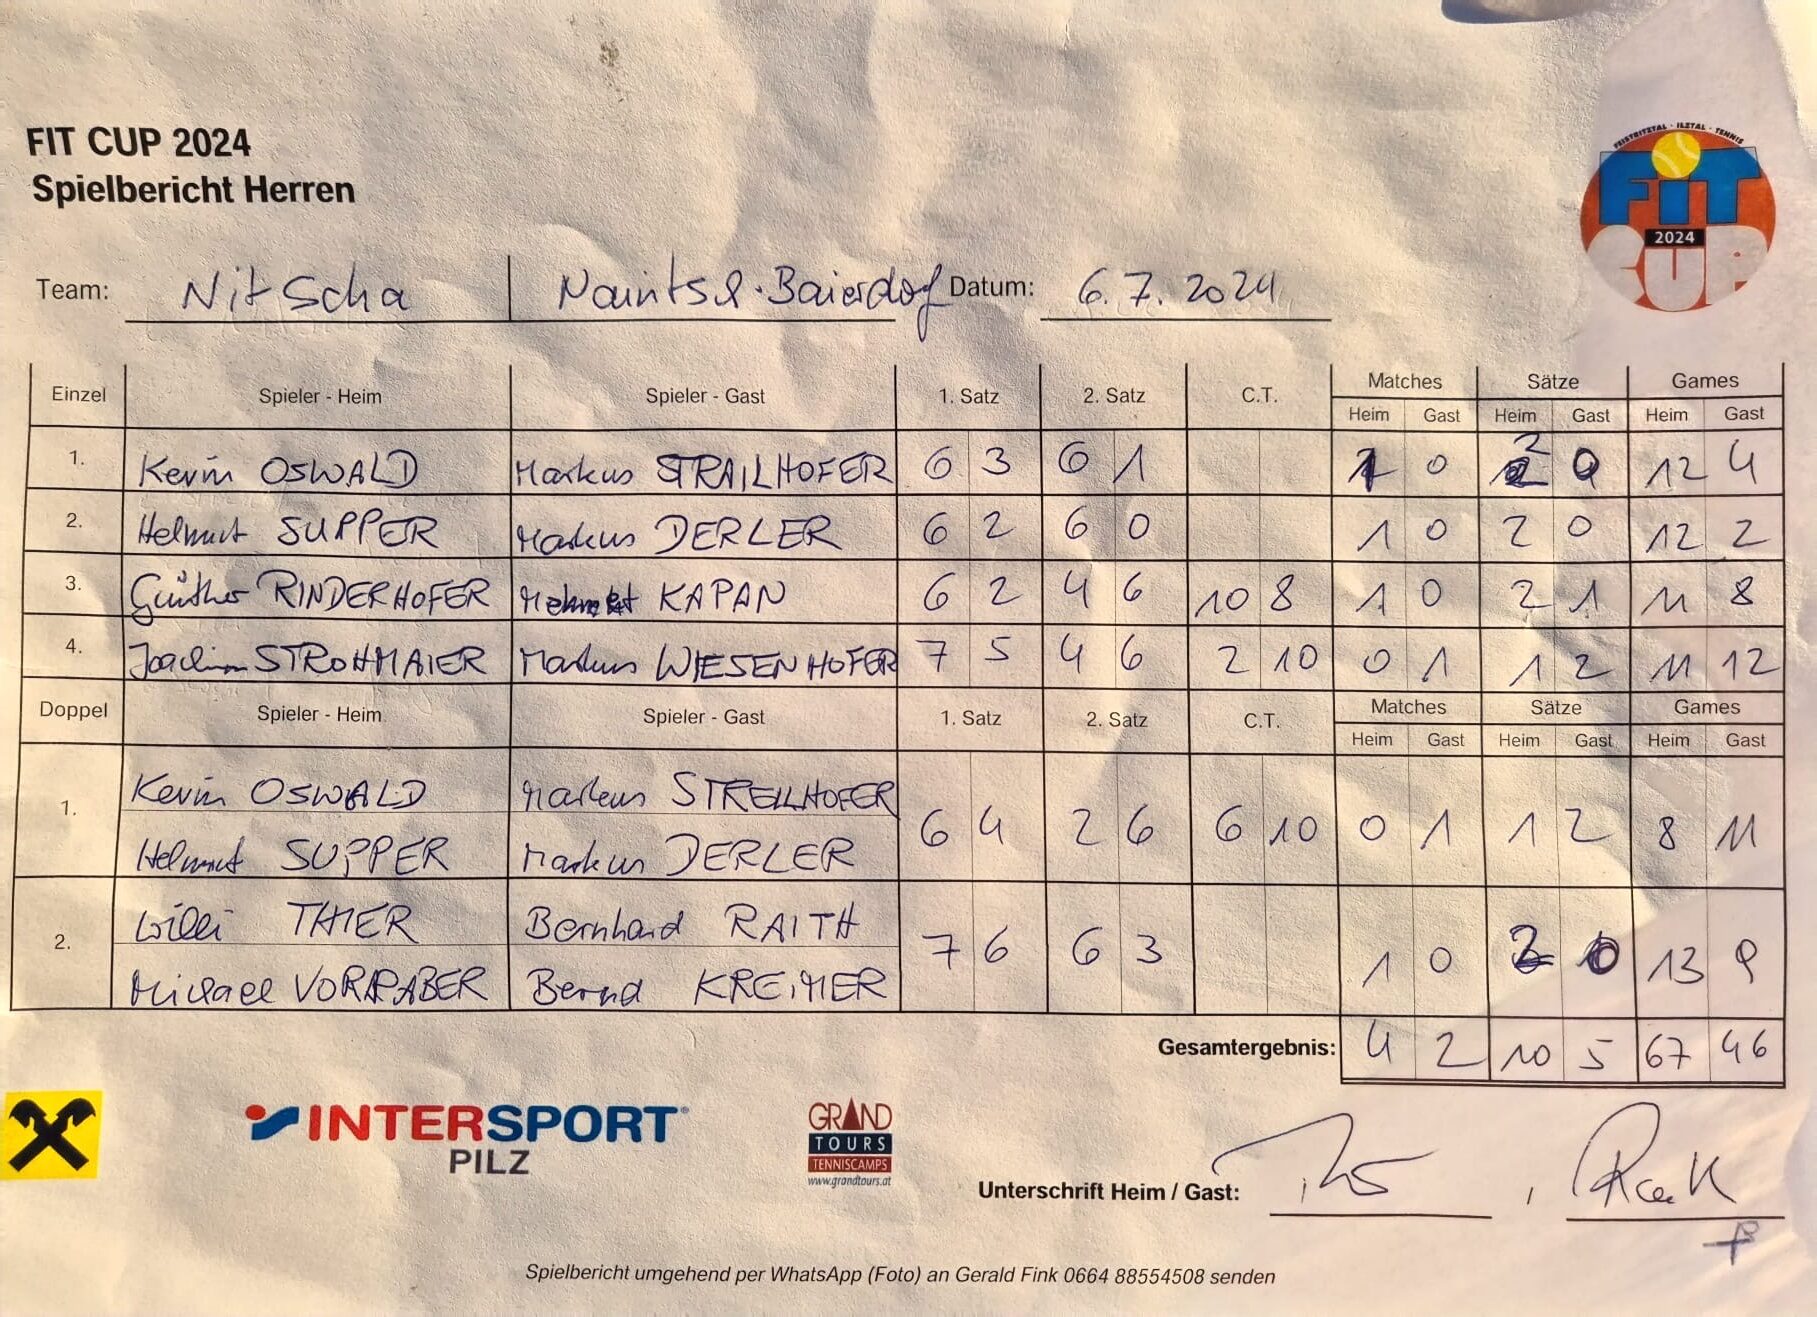 FIT CUP 2024
Spielbericht Herren
FEISTRITZTAL · ILZTAL · TENNIS
FiT
2024
CUP
Team: Nitscha Naintsch-Baierdorf Datum: 6.7.2024
Einzel Spieler - Heim Spieler - Gast 1. Satz 2. Satz C.T. Matches Sätze Games
Heim Gast Heim Gast Heim Gast
1. Kevin OSWALD Markus STRAILHOFER 6 3 6 1 1 0 2 0 12 4
2. Helmut SUPPER Markus DERLER 6 2 6 0 1 0 2 0 12 2
3. Günther RINDERHOFER Mehmet KAPAN 6 2 4 6 10 8 1 0 2 1 11 8
4. Joachim STROHMAIER Markus WIESENHOFER 7 5 4 6 2 10 0 1 1 2 11 12
Doppel Spieler - Heim Spieler - Gast 1. Satz 2. Satz C.T. Matches Sätze Games
Heim Gast Heim Gast Heim Gast
Kevin OSWALD Markus STREILHOFER
1. 6 4 2 6 6 10 0 1 1 2 8 11
Helmut SUPPER Markus DERLER
Willi THIER Bernhard RAITH
2. 7 6 6 3 1 0 2 0 13 9
Michael VORRABER Bernd KREIMER
Gesamtergebnis: 4 2 10 5 67 46
INTERSPORT
PILZ
GRAND
TOURS
TENNISCAMPS
www.grandtours.at
Unterschrift Heim / Gast:
Spielbericht umgehend per WhatsApp (Foto) an Gerald Fink 0664 88554508 senden